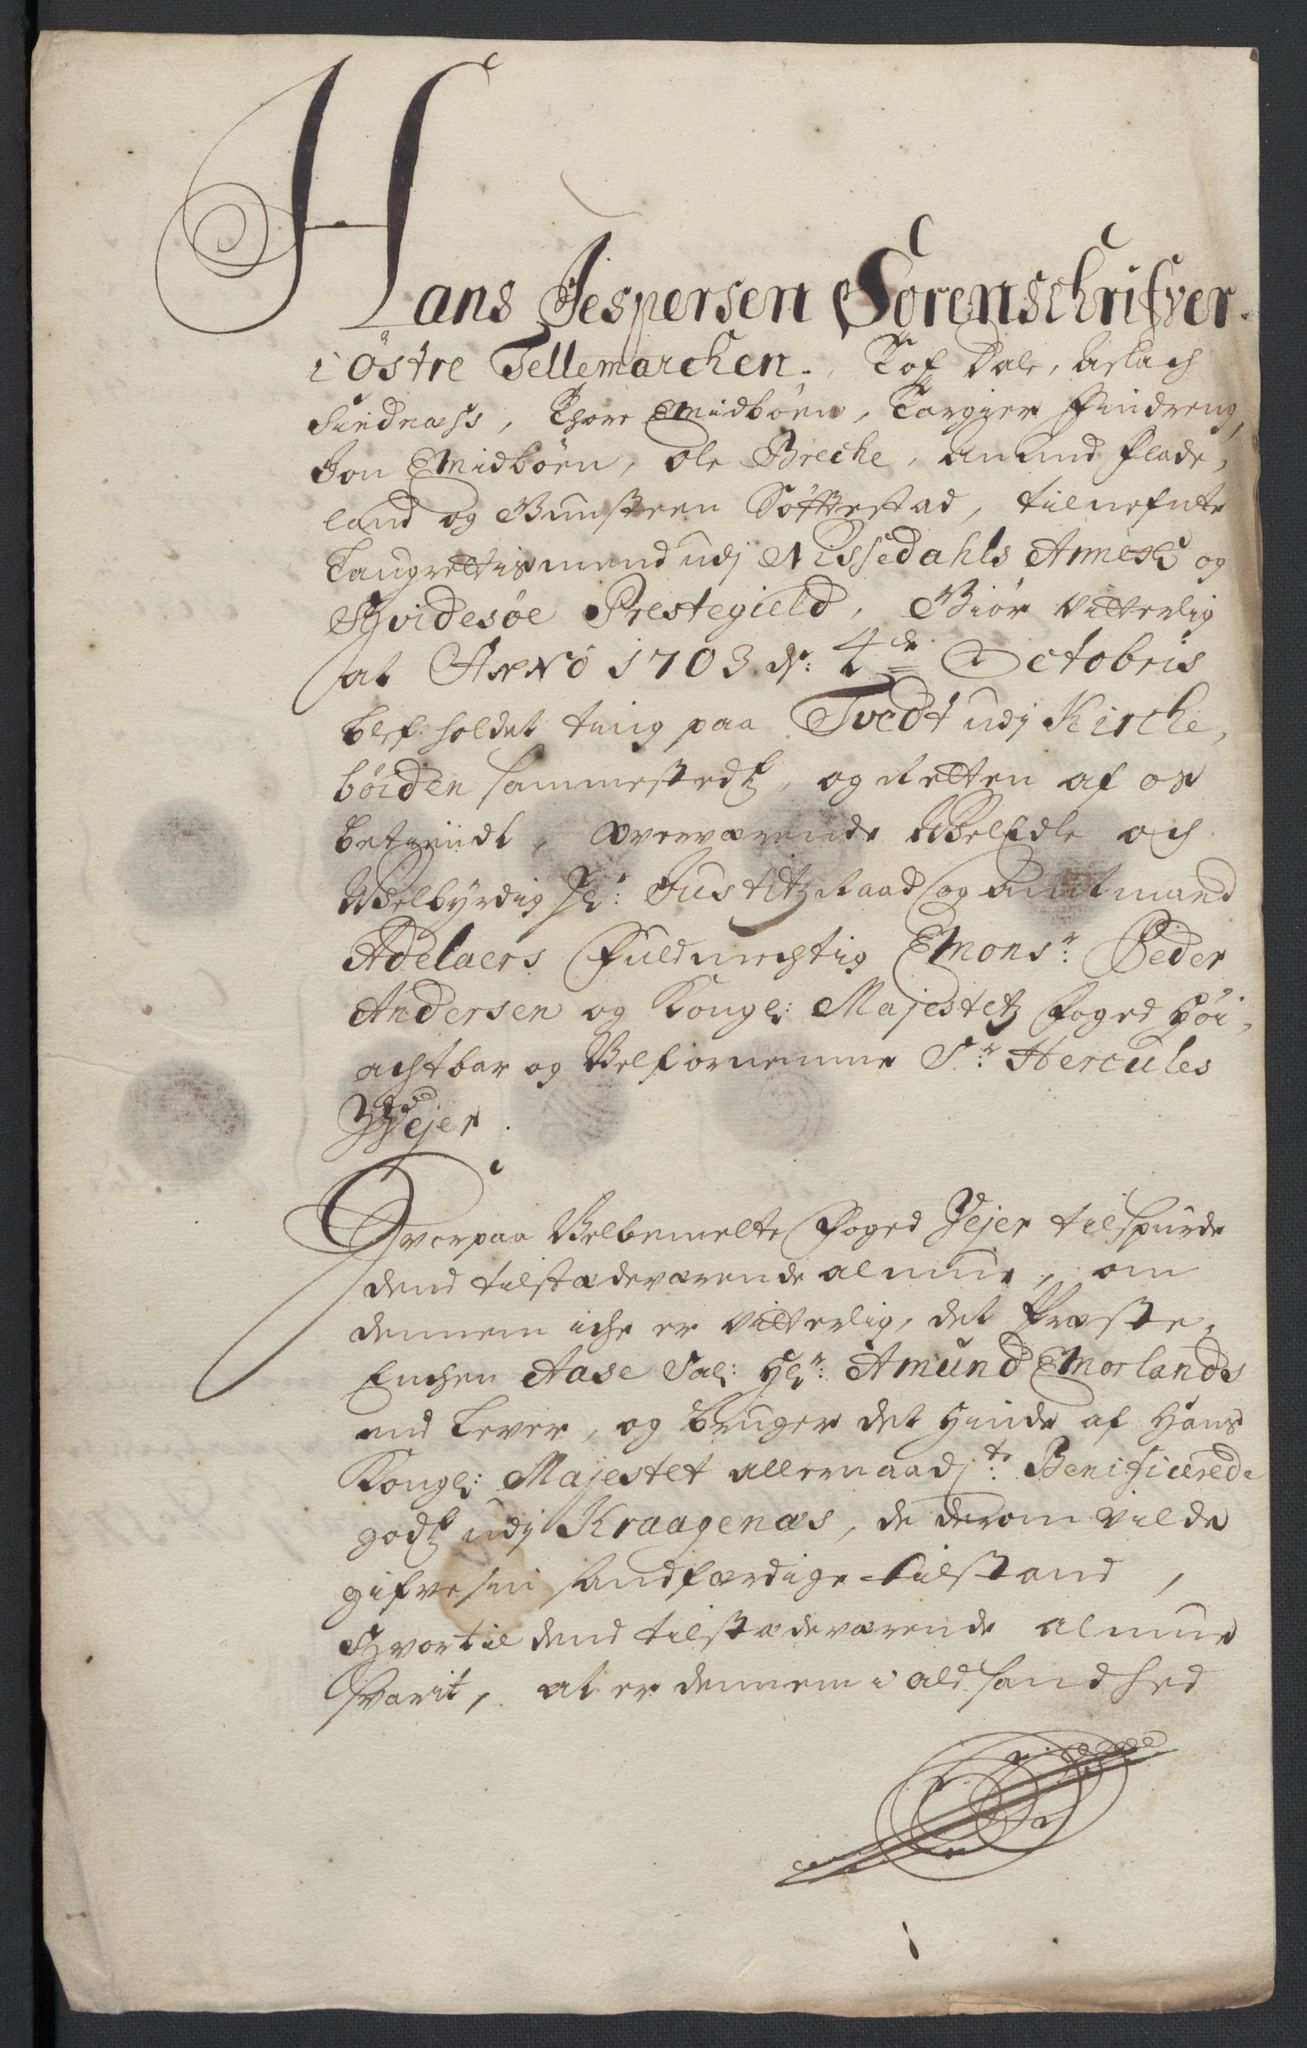 Hans Jespersen Sorenschrifver
i Östre Tellemarchen. Tof Dale, Aslach
Siednæss, Thore Midböen, Torgier Findreng,
Jon Midböen, Ole Breche, Anund Flade,
land og Gunsteen Söftestad, tilnefnte
Laugrettismend udj Nissedahls Annex og
Hvidesøe Prestegield, Giör vitterlig
at Anno 1703 dr: 4de Octobris
blef holdet ting paa Tvedt udj Kirche,
böiden sammestedtz, og Retten af os
betiendt, Overværende WelEdle och
Welbyrdig Hr: Justitz Raad og Amtmand
Adelaers Fuldmechtig Monsr: Peder
Andersen og Kongl: Majestetz Foged Höi,
achtbar og Velfornemme Sr: Hercules
Wejer.
Hvorpaa Velbemelte Foged Vejer tilspurde
dend tilstædeværende almue, om
dennem iche er vitterlig, det Præste,
Enchen Aase Sal: Hr: Amund Morlands
end lever, og bruger det hinde af Hans
Kongl: Majestet allernaadjste: Benificerede
godtz udj Kraagenæs, de derom vilde
gifve sin sandfærdige tilstand,
Hvortil dend tilstædeværende almue
svarit, at er dennem i ald sandhed